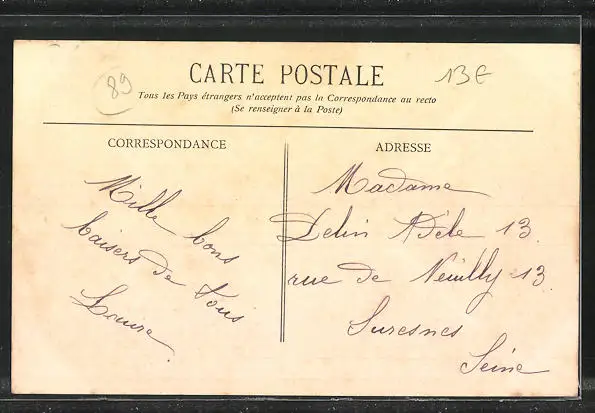 89
CARTE POSTALE
13€
Tous les Pays étrangers n'acceptent pas la Correspondance au recto
(Se renseigner à la Poste)
CORRESPONDANCE
ADRESSE
Mille bons
baisers de tous
Louise
Madame
Delin Adèle 13
rue de Neuilly 13
Suresnes
Seine